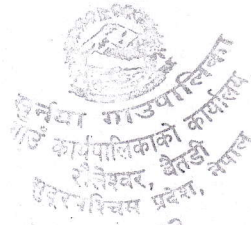 पुर्नवा गाउँपालिका
गाउँ कार्यपालिकाको कार्यालय
बैतडी
सुदूरपश्चिम प्रदेश, नेपाल